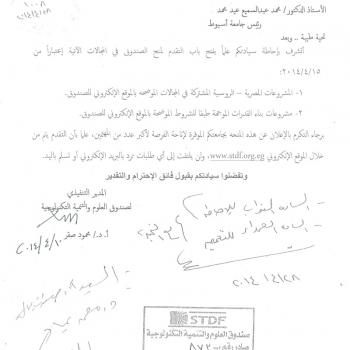 الأستاذ الدكتور/ محمد عبدالسميع عيد محمد
رئيس جامعة أسيوط
تحية طيبة .. وبعد
أتشرف بإحاطة سيادتكم علماً بفتح باب التقدم لمنح الصندوق في المجالات الآتية إعتباراً من
٢٠١٤/٤/١٥ :
١- مشروعات المصرية - الروسية المشتركة في المجالات الموضحه بالموقع الإلكتروني للصندوق.
٢- مشروعات بناء القدرات الموجمة طبقا للشروط الموضحة بالموقع الإلكتروني.
برجاء التكرم بالإعلان عن هذه المنحه بجامعتكم الموقرة لإتاحة الفرصة لأكبر عدد من المهتمين، علماً أن التقدم يتم من
خلال الموقع الإلكتروني www.stdf.org.eg، ولن يلتفت إلى أي طلبات ترد بالبريد الإلكتروني أو تسلم باليد.
وتفضلوا سيادتكم بقبول فائق الإحترام والتقدير
المدير التنفيذي
لصندوق العلوم والتنمية التكنولوجية
أ.د/ محمود صقر
٢٠١٤/٤/١٠
السادة النواب للإحاطة
السادة العمداء للتنبيه
٢٠١٤/٤/٢٨
STDF
صندوق العلوم والتنمية التكنولوجية
صادر رقم: ٨٧٢